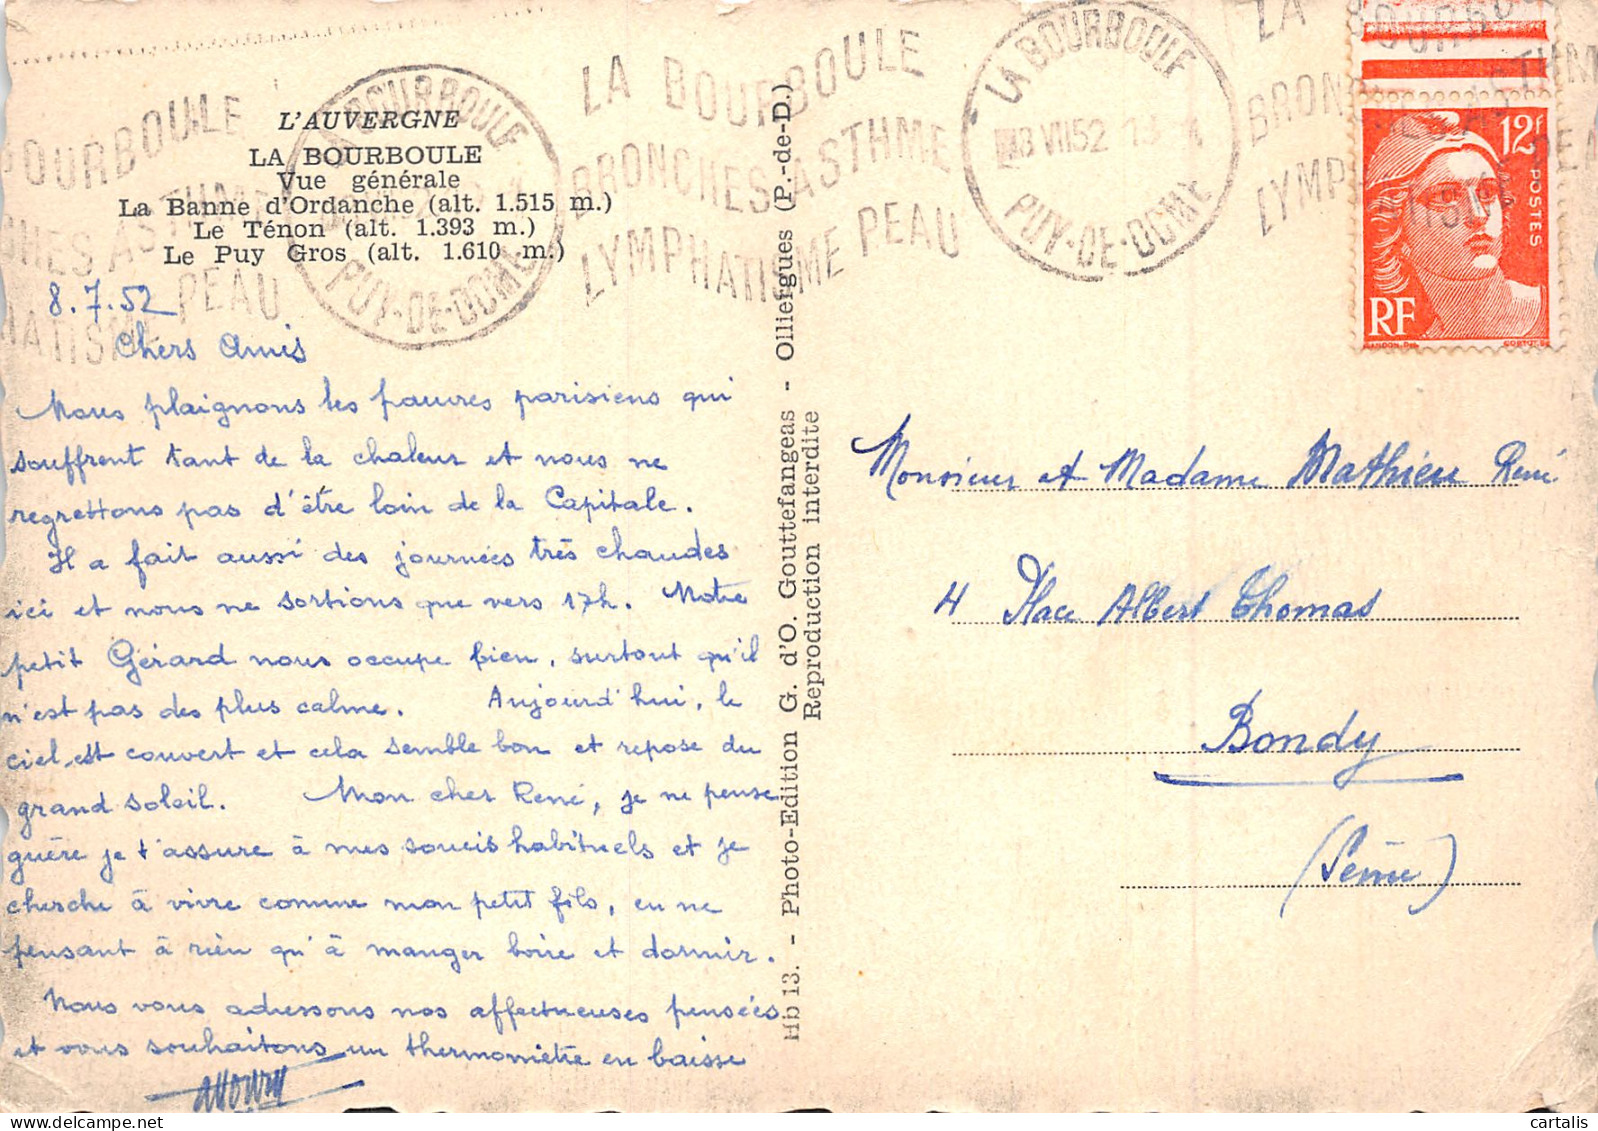 L'AUVERGNE
LA BOURBOULE
Vue générale
La Banne d'Ordanche (alt. 1.515 m.)
Le Ténon (alt. 1.393 m.)
Le Puy Gros (alt. 1.610 m.)
8.7.52
Chers Amis
Nous plaignons les pauvres parisiens qui
souffrent tant de la chaleur et nous ne
regrettons pas d'être loin de la Capitale.
Il a fait aussi des journées très chaudes
ici et nous ne sortions que vers 17h. Notre
petit Gérard nous occupe bien, surtout qu'il
n'est pas des plus calme. Aujourd'hui, le
ciel est couvert et cela semble bon et repose du
grand soleil. Mon cher René, je ne pense
guère je t'assure à mes soucis habituels et je
cherche à vivre comme mon petit fils, en ne
pensant à rien qu'à manger boire et dormir.
Nous vous adressons nos affectueuses pensées
et vous souhaitons un thermomètre en baisse
Hb 13. - Photo-Edition G. d'O. Gouttefangeas - Olliergues (P.-de-D.)
Reproduction interdite
BOURBOULE
BRONCHES ASTHME
LYMPHATISME PEAU
LA BOURBOULE
PUY-DE-DOME
LA BOURBOULE
BRONCHES ASTHME
LYMPHATISME PEAU
LA BOURBOULE
8 VII 52
PUY-DE-DOME
LA BOURBOULE
12F
POSTES
RF
Monsieur et Madame Mathieu René
4 Place Albert Thomas
Bondy
(Seine)
cartalis